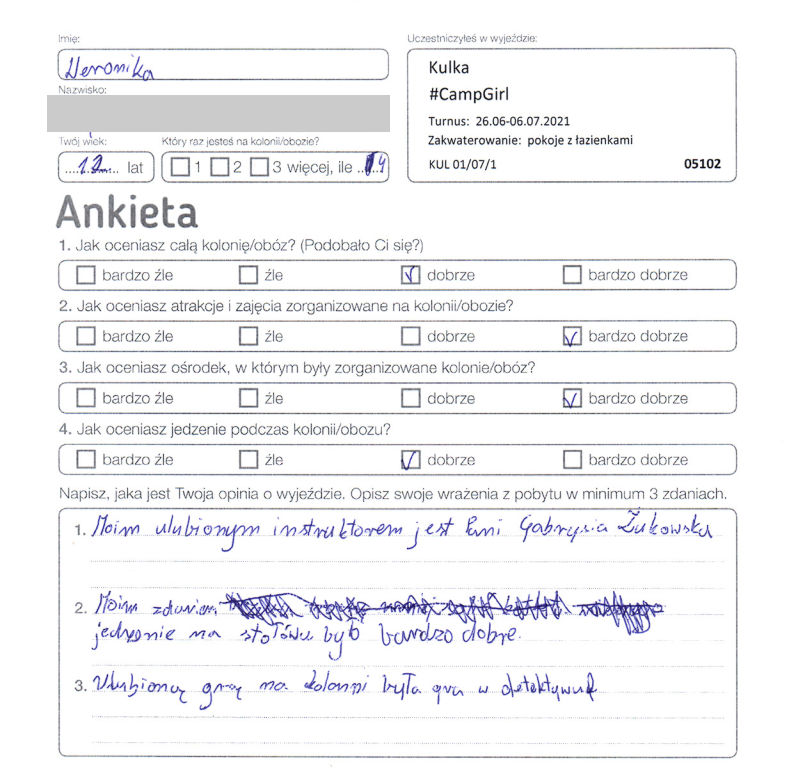 Imię:
Weronika
Nazwisko:
Twój wiek:
12 lat
Który raz jesteś na kolonii/obozie?
1 2 3 więcej, ile 4
Uczestniczyłeś w wyjeździe:
Kulka
#CampGirl
Turnus: 26.06-06.07.2021
Zakwaterowanie: pokoje z łazienkami
KUL 01/07/1 05102
Ankieta
1. Jak oceniasz całą kolonię/obóz? (Podobało Ci się?)
bardzo źle źle dobrze bardzo dobrze
2. Jak oceniasz atrakcje i zajęcia zorganizowane na kolonii/obozie?
bardzo źle źle dobrze bardzo dobrze
3. Jak oceniasz ośrodek, w którym były zorganizowane kolonie/obóz?
bardzo źle źle dobrze bardzo dobrze
4. Jak oceniasz jedzenie podczas kolonii/obozu?
bardzo źle źle dobrze bardzo dobrze
Napisz, jaka jest Twoja opinia o wyjeździe. Opisz swoje wrażenia z pobytu w minimum 3 zdaniach.
1. Moim ulubionym instruktorem jest Pani Gabrysia Żukowska
2. Moim zdaniem
jedzenie na stołówce było bardzo dobre.
3. Ulubioną grą na kolonii była gra w detektywa